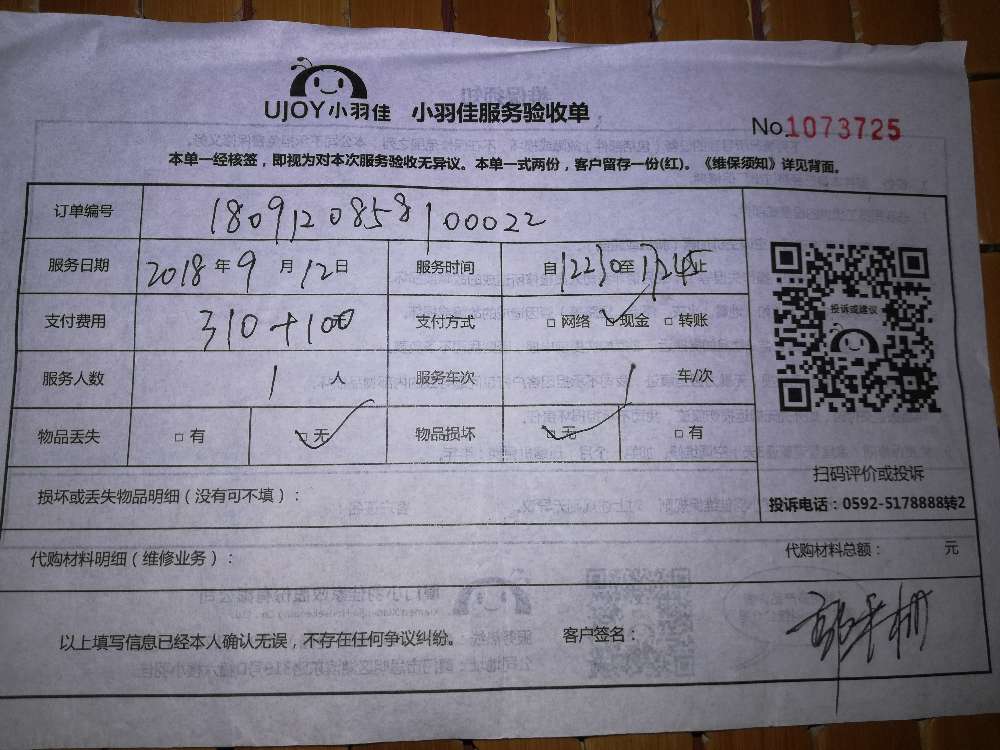 UJOY小羽佳 小羽佳服务验收单
No.1073725
本单一经核签，即视为对本次服务验收无异议。本单一式两份，客户留存一份(红)。《维保须知》详见背面。
订单编号 1809120858100022
服务日期 2018年9月12日 服务时间 自1230至1745止
支付费用 310+100元 支付方式 □网络 ☑现金 □转账
服务人数 1人 服务车次 1车/次
物品丢失 □有 ☑无 物品损坏 ☑无 □有
投诉或建议
扫码评价或投诉
投诉电话：0592-5178888转2
损坏或丢失物品明细（没有可不填）：
代购材料明细（维修业务）： 代购材料总额： 元
以上填写信息已经本人确认无误，不存在任何争议纠纷。 客户签名：